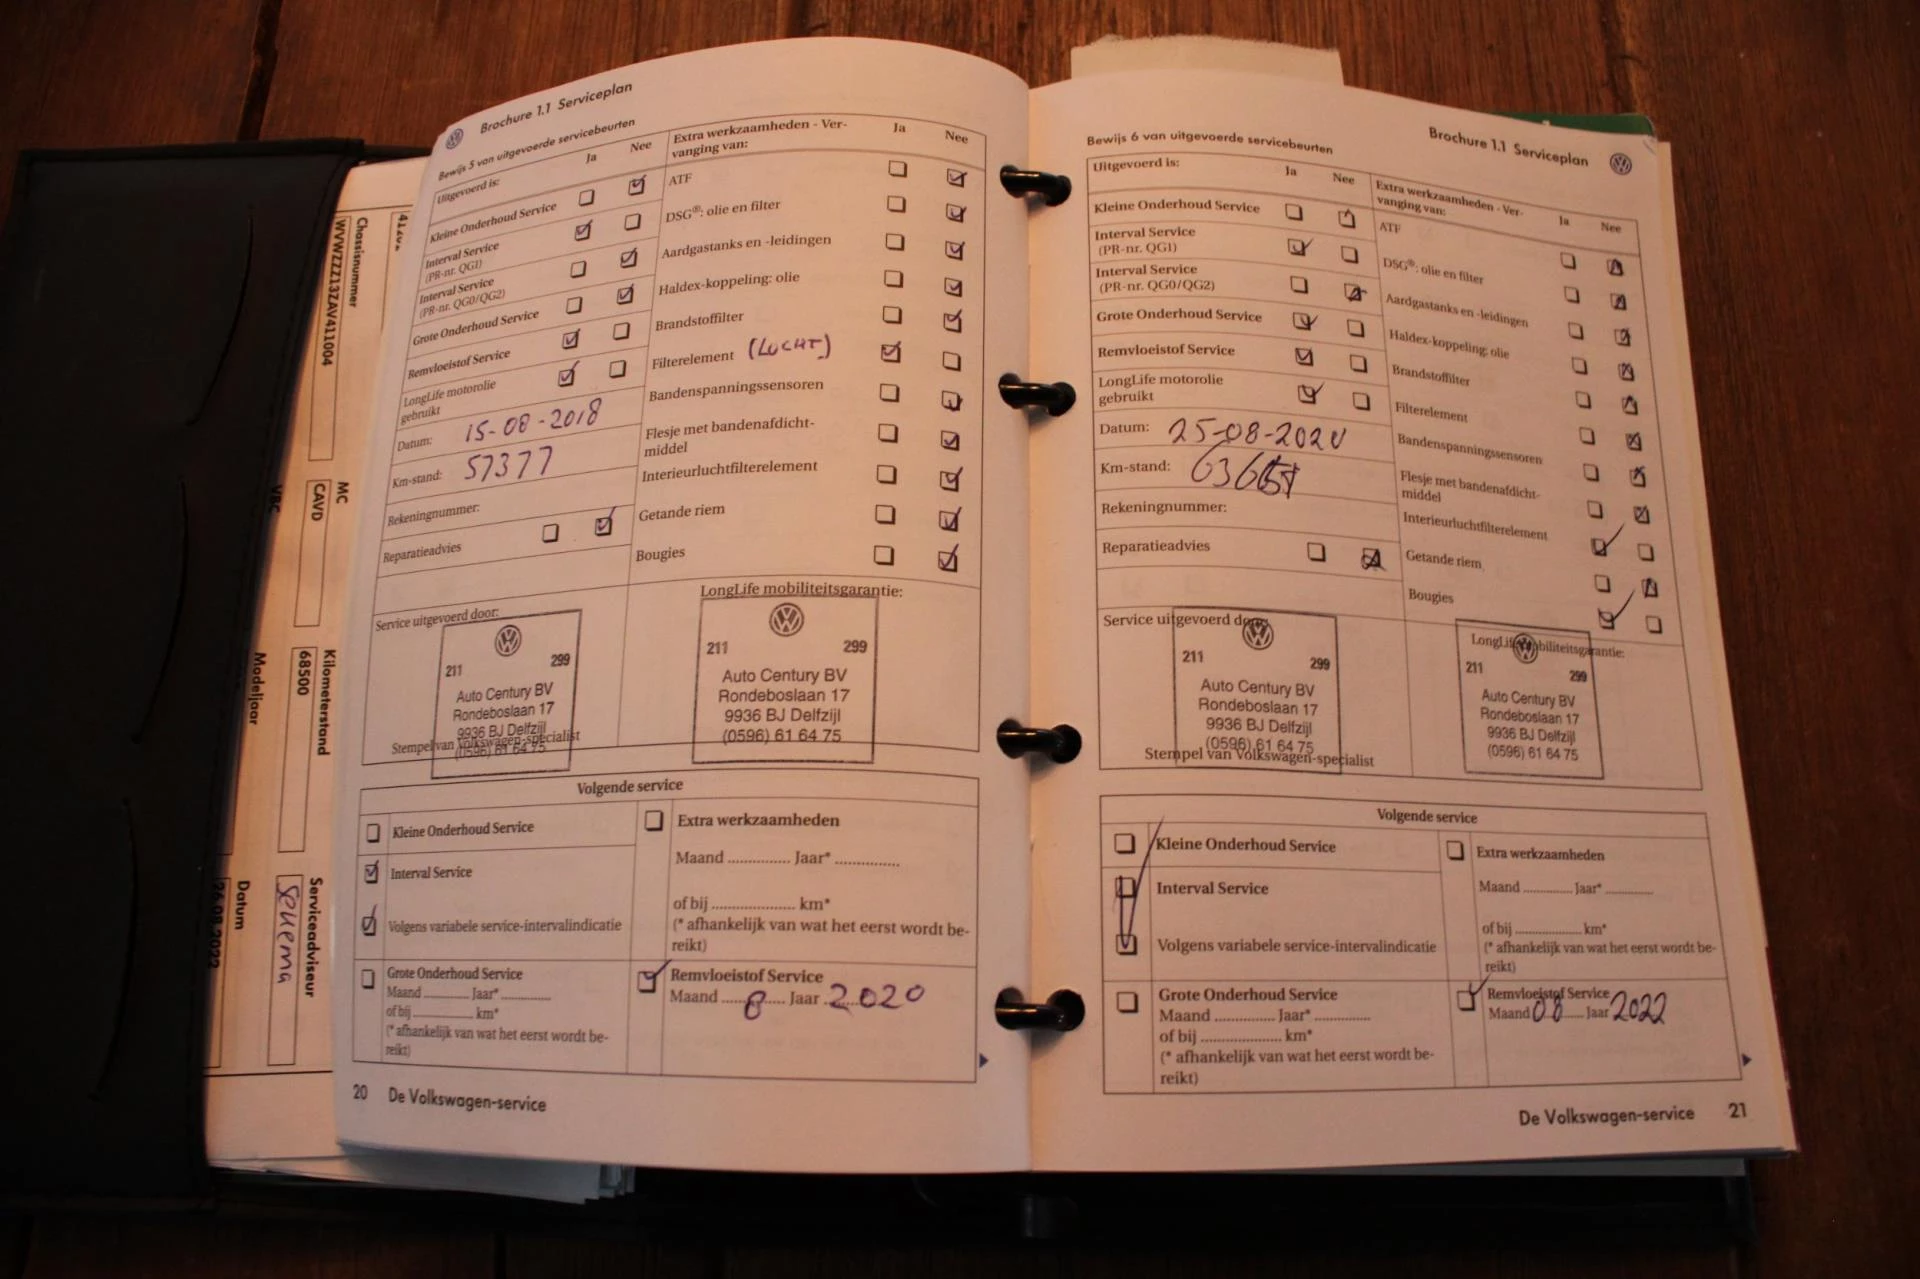 41202
Chassisnummer
WVWZZZ13ZAV411004
MC
CAVD
VBC
Kilometerstand
68500
Modeljaar
Serviceadviseur
Datum
26.08.2022
Brochure 1.1 Serviceplan
Bewijs 5 van uitgevoerde servicebeurten
Uitgevoerd is:
Ja
Nee
Kleine Onderhoud Service
Interval Service
(PR-nr. QG1)
Interval Service
(PR-nr. QG0/QG2)
Grote Onderhoud Service
Remvloeistof Service
LongLife motorolie
gebruikt
Datum: 15-08-2018
Km-stand: 57377
Rekeningnummer:
Reparatieadvies
Extra werkzaamheden - Ver-
vanging van:
Ja
Nee
ATF
DSG®: olie en filter
Aardgastanks en -leidingen
Haldex-koppeling: olie
Brandstoffilter
Filterelement (LUCHT)
Bandenspanningssensoren
Flesje met bandenafdicht-
middel
Interieurluchtfilterelement
Getande riem
Bougies
Service uitgevoerd door:
211 299
Auto Century BV
Rondeboslaan 17
9936 BJ Delfzijl
(0596) 61 64 75
Stempel van Volkswagen-specialist
LongLife mobiliteitsgarantie:
211 299
Auto Century BV
Rondeboslaan 17
9936 BJ Delfzijl
(0596) 61 64 75
Volgende service
Kleine Onderhoud Service
Interval Service
Volgens variabele service-intervalindicatie
Grote Onderhoud Service
Maand ............ Jaar* ............
of bij ............ km*
(* afhankelijk van wat het eerst wordt be-
reikt)
Extra werkzaamheden
Maand ............ Jaar* ............
of bij ............ km*
(* afhankelijk van wat het eerst wordt be-
reikt)
Remvloeistof Service
Maand 8 Jaar 2020
20 De Volkswagen-service
Brochure 1.1 Serviceplan
Bewijs 6 van uitgevoerde servicebeurten
Uitgevoerd is:
Ja
Nee
Kleine Onderhoud Service
Interval Service
(PR-nr. QG1)
Interval Service
(PR-nr. QG0/QG2)
Grote Onderhoud Service
Remvloeistof Service
LongLife motorolie
gebruikt
Datum: 25-08-2020
Km-stand:
Rekeningnummer:
Reparatieadvies
Extra werkzaamheden - Ver-
vanging van:
Ja
Nee
ATF
DSG®: olie en filter
Aardgastanks en -leidingen
Haldex-koppeling: olie
Brandstoffilter
Filterelement
Bandenspanningssensoren
Flesje met bandenafdicht-
middel
Interieurluchtfilterelement
Getande riem
Bougies
Service uitgevoerd door:
211 299
Auto Century BV
Rondeboslaan 17
9936 BJ Delfzijl
(0596) 61 64 75
Stempel van Volkswagen-specialist
LongLife mobiliteitsgarantie:
211 299
Auto Century BV
Rondeboslaan 17
9936 BJ Delfzijl
(0596) 61 64 75
Volgende service
Kleine Onderhoud Service
Interval Service
Volgens variabele service-intervalindicatie
Grote Onderhoud Service
Maand ............ Jaar* ............
of bij ............ km*
(* afhankelijk van wat het eerst wordt be-
reikt)
Extra werkzaamheden
Maand ............ Jaar* ............
of bij ............ km*
(* afhankelijk van wat het eerst wordt be-
reikt)
Remvloeistof Service
Maand 08 Jaar 2022
De Volkswagen-service 21